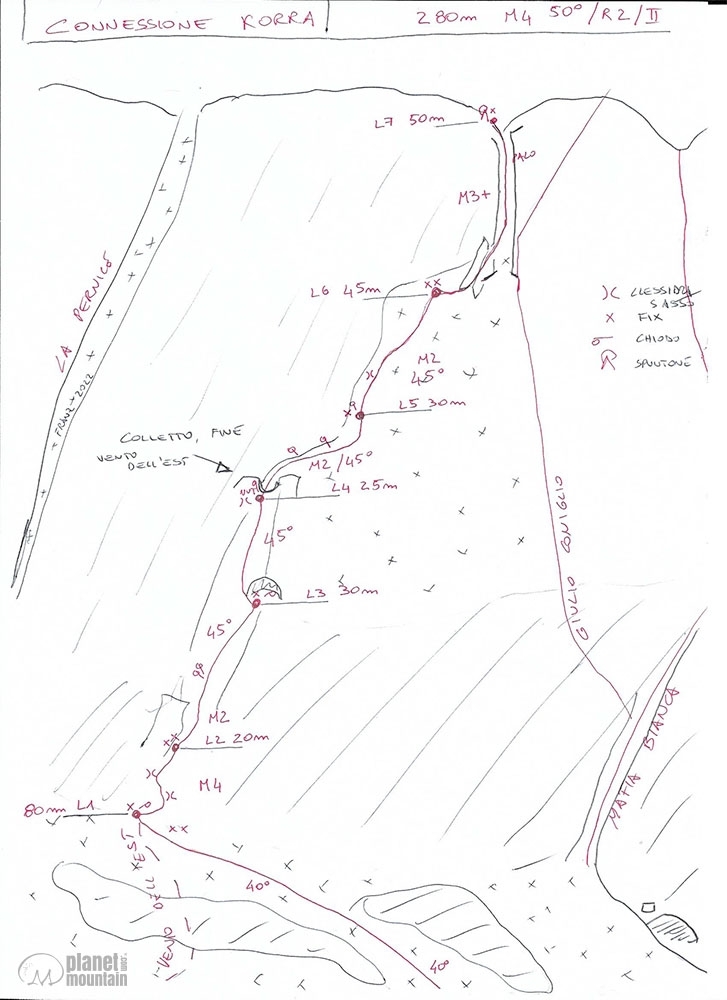 CONNESSIONE KORRA
280m M4 50°/R2/II
L7 50m
M3+
L6 45m
LA PERNICE
FRANZ + 2022
CLESSIDRA
SASSO
FIX
CHIODO
SPUNTONE
M2
45°
L5 30m
COLLETTO, FINE
VENTO
DELL'EST
M2/45°
L4 25m
45°
L3 30m
45°
GIULIO CONIGLIO
M2
L2 20m
MAFIA BIANCA
M4
80m L1
VENTO DELL'EST
40°
40°
planet
mountain
.com